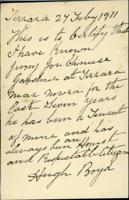 Terrara 27 Feby 1911
This is to Certify that
I have Known
Jimmy Joe Chinese
Gardener at Terrara
near Nowra for the
last Seven years
he has been a Tenant
of mine and has
always been Honest
and Respectable Citizen
Hugh Boyd